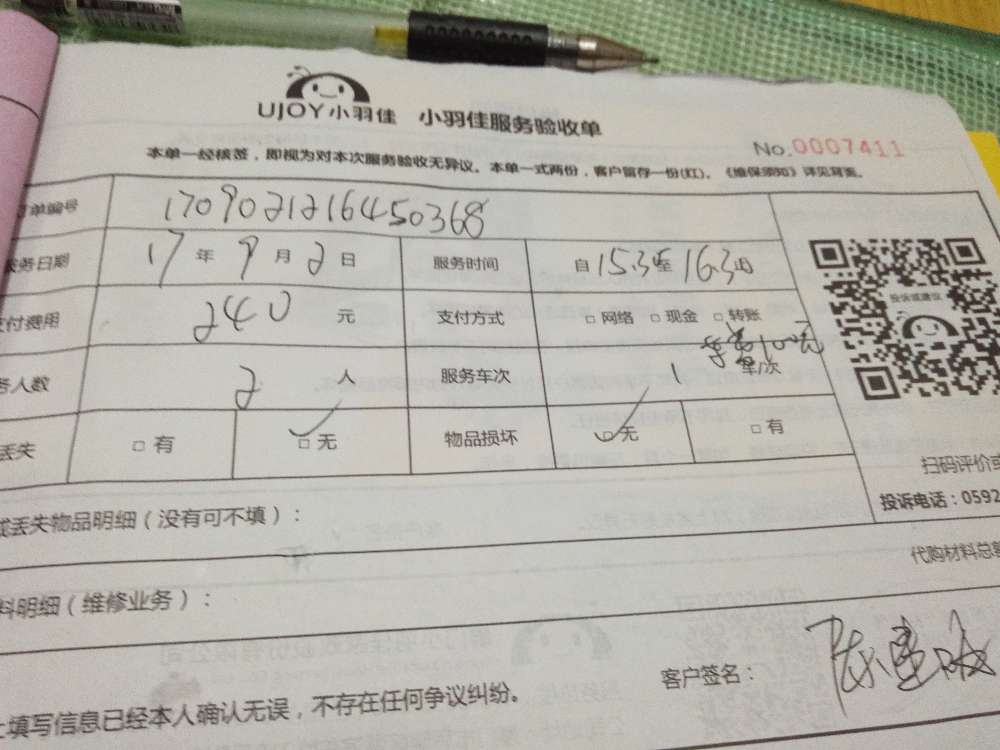 UJOY小羽佳 小羽佳服务验收单
No.0007411
本单一经核签，即视为对本次服务验收无异议。本单一式两份，客户留存一份(红)。《维保须知》详见背面。
单编号 1709021216450368
务日期 17年9月2日 服务时间 自15.3至16.3止
付费用 240元 支付方式 □网络 □现金 □转账
投诉或建议
务人数 2人 服务车次 1 车/次
丢失 □有 □无 物品损坏 □无 □有
扫码评价或
投诉电话：0592
或丢失物品明细（没有可不填）：
代购材料总额
料明细（维修业务）：
客户签名：
上填写信息已经本人确认无误，不存在任何争议纠纷。